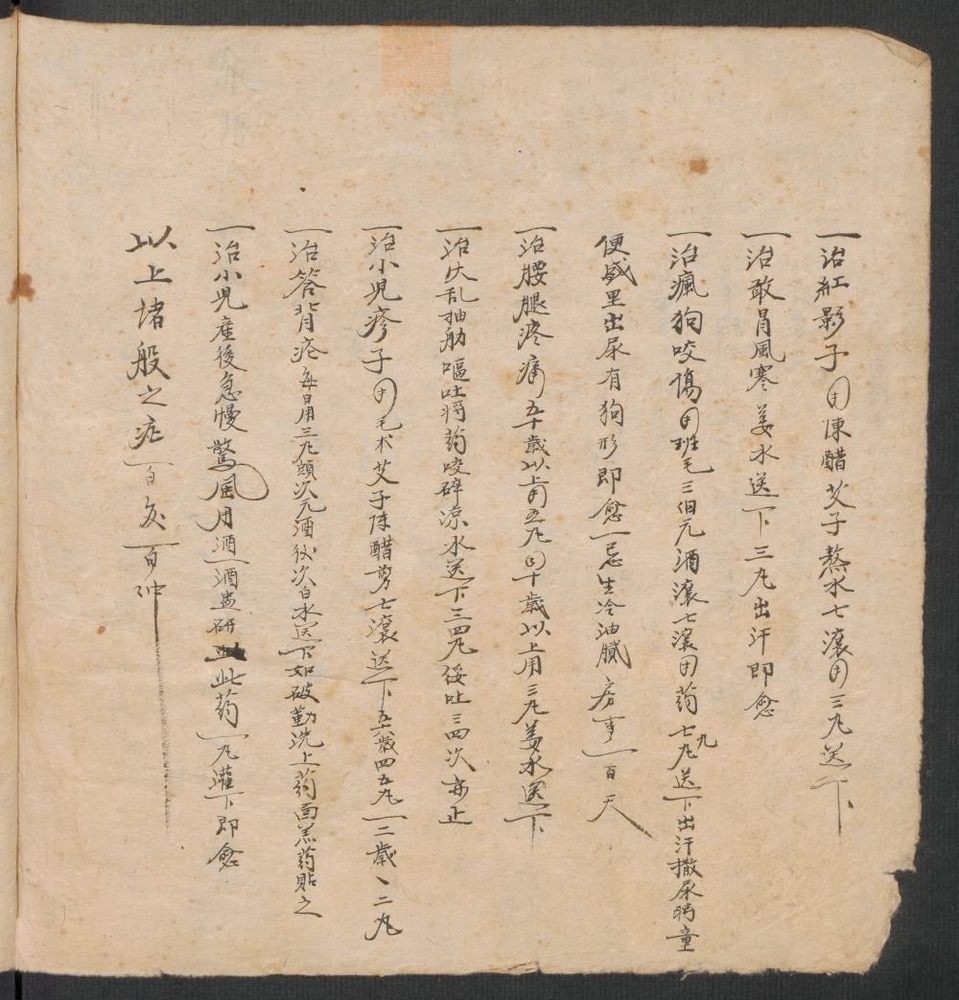 一治紅影子用陳醋艾子熬水七滾用三丸送下
一治敢冐風寒姜水送下三丸出汗即愈
一治瘋狗咬傷用班毛三個元酒滾七滾用药七九丸送下出汗撒尿時童
便盛里出尿有狗形即愈一忌生冷油膩房事一百天
一治腰腿疼痛五十歲以上用五丸四十歲以上用三丸姜水送下
一治伏乱抽肋嘔吐将药咬碎凉水送下三四丸綏吐三四次亦止
一治小児疹子用毛术艾子陳醋剪七滾送下五六歲四五丸一二歲一二丸
一治答背疮每日用三丸頭次元酒後次白水送下如破勤洗上药面羔药貼之
一治小児產後急慢驚風用酒一酒盅研此药一丸灌下即愈
以上堵般之症百灸百冲